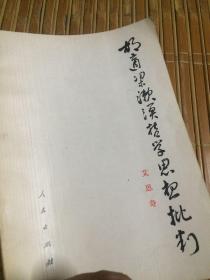 胡适梁漱溟哲学思想批判
艾思奇
人民出版社